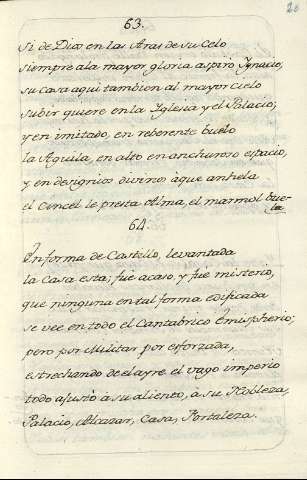 20
63.
Si de Dios en las Aras de su Celo
siempre ala mayor gloria aspiró Ygnacio,
su casa aqui tambien al mayor cielo
subir quiere en la Yglesia y el Palacio;
y en imitado, en reberente buelo
la Aguila, en alto en anchuroso espacio,
y en designios divinos àque anhela
el Cincel le presta Alma, el marmol buela
64.
En forma de Castillo, levantada
la Casa esta; fue acaso, y fue misterio,
que ninguna en tal forma edificada
se vee en todo el Cantabrico Emispherio;
pero por Militar por esforzada,
estrechando de el ayre el vago imperio
todo ajustó a su aliento, a su Nobleza,
Palacio, Alcazar, Casa, Fortaleza.